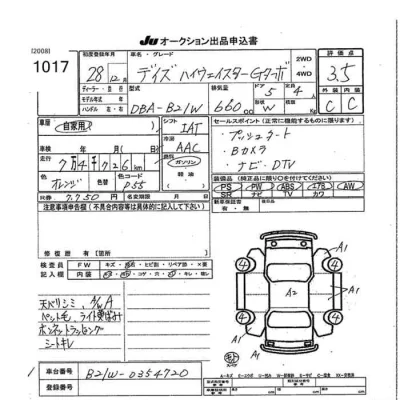 [2008]
JU オークション出品申込書
1017
初度登録年月
28年12月
車名・グレード
デイズ ハイウェイスターGターボ
2WD
4WD
評価点
3.5
ディーラー
モデル年式
型式
DBA-B21W
排気量
660cc
形状
W
ドア
5
定員
4人
外装
内装
C
C
車歴
自家用
シフト
IAT
冷房
AAC
車検
年
月
走行
7万4千726km
燃料
ガソリン
軽油
色
オレンジ
色替
色コード
P55
R券
7,750円
セールスポイント(正常に機能するものに限ります。)
・プッシュスタート
・Bカメラ
・ナビ・DTV
装備品(純正品に限り○を付けてください)
PS PW ABS エアB AW
SR ナビ TV カワ
新車時保証書
有・無
注意事項申告(不具合内容等は具体的に書いてください)
修復歴 有【箇所 】
検査員
記入欄
FW
内装
天バリシミ、小A
ペット毛、ライト黄ばみ
ボンネットラッピング
シートキレ
A1
A1
A2
A1
A1
4
4
4
4
車台番号
B21W-0354720
登録番号